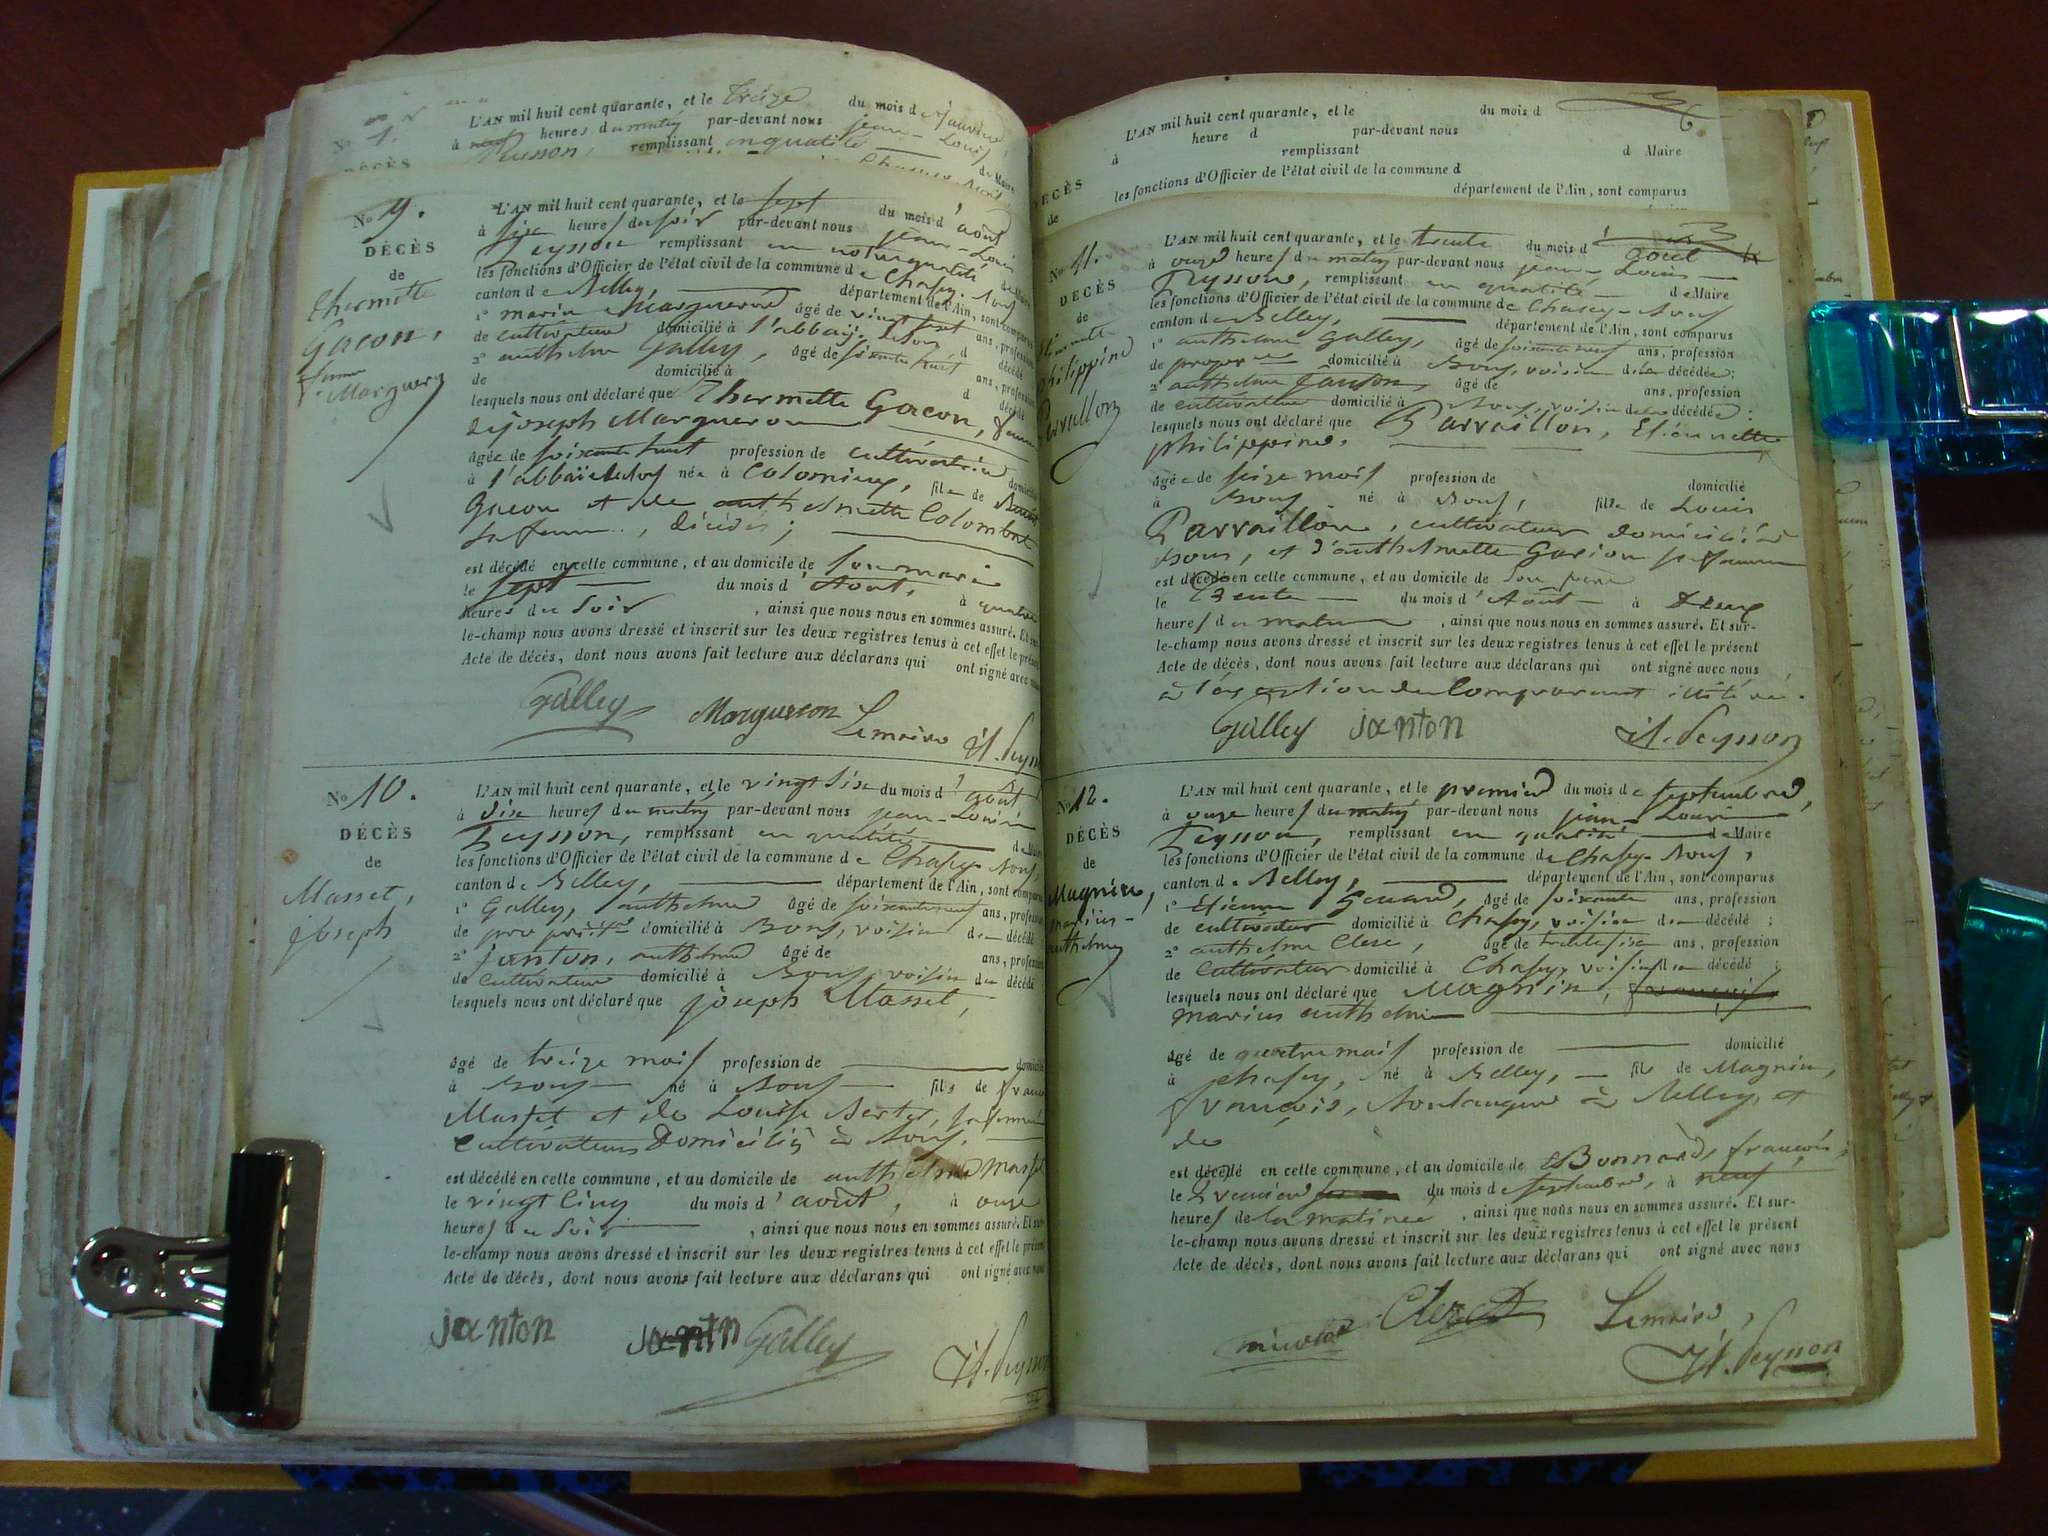 L'AN mil huit cent quarante, et le treize du mois de janvier
à heures du matin par-devant nous jean-Louis
remplissant en qualité
N° 1.
DÉCÈS
N° 9.
DÉCÈS
de
thermette
Gacon,
femme
Marguery
L'AN mil huit cent quarante, et le sept du mois d'août
à six heures du soir par-devant nous jean-Louis
Peysson remplissant en notre qualité de Maire
les fonctions d'Officier de l'état civil de la commune de Chasey-Bons
canton de Belley, département de l'Ain, sont comparus
1° marin Margueron âgé de vingt sept ans, profession
de cultivateur domicilié à l'abbaÿe de Bons d décédé
2° anthelme Galley, âgé de soixante huit ans, profession
de domicilié à d décédé
lesquels nous ont déclaré que Thermette Gacon, femme
de joseph Margueron
âgée de soixante huit profession de cultivatrice domicilié
à l'abbaïe de bons née à Colomieu, fille de Benoit
Gacon et de anthelmette Colombet
sa femme, décédés;
est décédé en celle commune, et au domicile de son mari
le sept du mois d'Aout, à quatre
heures du Soir, ainsi que nous nous en sommes assuré. Et sur-
le-champ nous avons dressé et inscrit sur les deux registres tenus à cet effet le présent
Acte de décès, dont nous avons fait lecture aux déclarans qui ont signé avec nous
Galley Margueron Le maire J.L. Peysson
N° 10.
DÉCÈS
de
Masset,
joseph
L'AN mil huit cent quarante, et le vingt six du mois d'août
à dix heures du matin par-devant nous jean-Louis
Peysson, remplissant en qualité de Maire
les fonctions d'Officier de l'état civil de la commune de Chasey-Bons,
canton de Belley, département de l'Ain, sont comparus
1° Galley, anthelme âgé de soixante neuf ans, profession
de propriétre domicilié à Bons, voisin du décédé
2° janton, anthelme âgé de ans, profession
de cultivateur domicilié à Bons voisin du décédé
lesquels nous ont déclaré que joseph Masset,
âgé de treize mois profession de domicilié
à Bons né à Bons fils de françois
Masset et de Louise Berter, sa femme
cultivateurs domiciliés à Bons,
est décédé en celle commune, et au domicile de anthelme Masset
le vingt cinq du mois d'août, à onze
heures du Soir, ainsi que nous nous en sommes assuré. Et sur-
le-champ nous avons dressé et inscrit sur les deux registres tenus à cet effet le présent
Acte de décès, dont nous avons fait lecture aux déclarans qui ont signé avec nous
janton janton Galley J.L. Peysson
L'AN mil huit cent quarante, et le du mois d
à heure d par-devant nous
remplissant d Maire
les fonctions d'Officier de l'état civil de la commune d
département de l'Ain, sont comparus
DÉCÈS
de
N° 11.
DÉCÈS
de
philippine
Parvaillon
L'AN mil huit cent quarante, et le trente du mois d'août
à onze heures du matin par-devant nous jean-Louis
Peysson, remplissant en qualité de Maire
les fonctions d'Officier de l'état civil de la commune de Chasey-Bons
canton de Belley, département de l'Ain, sont comparus
1° anthelme Galley, âgé de soixante neuf ans, profession
de propre domicilié à Bons, voisin de la décédée;
2° anthelme janton, âgé de ans, profession
de cultivateur domicilié à Bons, voisin de la décédée:
lesquels nous ont déclaré que Parvaillon, Etiennette
philippine,
âgée de seize mois profession de domicilié
à Bons né à Bons, fille de Louis
Parvaillon, cultivateur domicilié à
Bons, et d'anthelmette Gacion sa femme
est décédé en celle commune, et au domicile de son père
le trente du mois d'Août à deux
heures du matin, ainsi que nous nous en sommes assuré. Et sur-
le-champ nous avons dressé et inscrit sur les deux registres tenus à cet effet le présent
Acte de décès, dont nous avons fait lecture aux déclarans qui ont signé avec nous
à l'exception du comparant illitéré.
Galley janton J.L. Peysson
N° 12.
DÉCÈS
de
Magnin,
marius-
anthelme
L'AN mil huit cent quarante, et le premier du mois de septembre,
à onze heures du matin par-devant nous jean-Louis
Peysson, remplissant en qualité de Maire
les fonctions d'Officier de l'état civil de la commune de Chasey-Bons,
canton de Belley, département de l'Ain, sont comparus
1° Etienne âgé de soixante ans, profession
de cultivateur domicilié à Chasey, voisin du décédé;
2° anthelme Clerc, âgé de trente six ans, profession
de cultivateur domicilié à Chasey, voisin du décédé;
lesquels nous ont déclaré que Magnin, françois
marius anthelme
âgé de quatre mois profession de domicilié
à Chasey, né à Belley, fils de Magnin,
françois, boulanger à Belley, et
de
est décédé en celle commune, et au domicile de Bonnard, françois;
le premier du mois de septembre, à neuf
heures de la matinée, ainsi que nous nous en sommes assuré. Et sur-
le-champ nous avons dressé et inscrit sur les deux registres tenus à cet effet le présent
Acte de décès, dont nous avons fait lecture aux déclarans qui ont signé avec nous
Clerc Le maire, J.L. Peysson